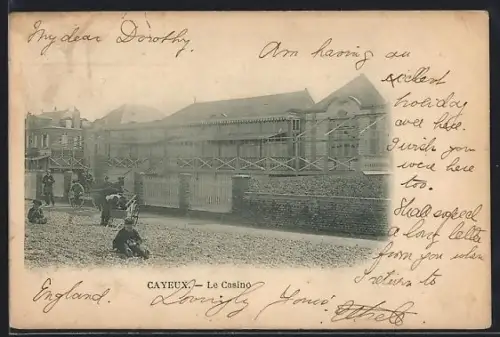 My dear Dorothy.
Am having an
excellent
holiday
over here.
I wish you
were here
too.
Shall expect
a long letter
from you when
I return to
England.
Lovingly Yours'
Ethel
CAYEUX. — Le Casino